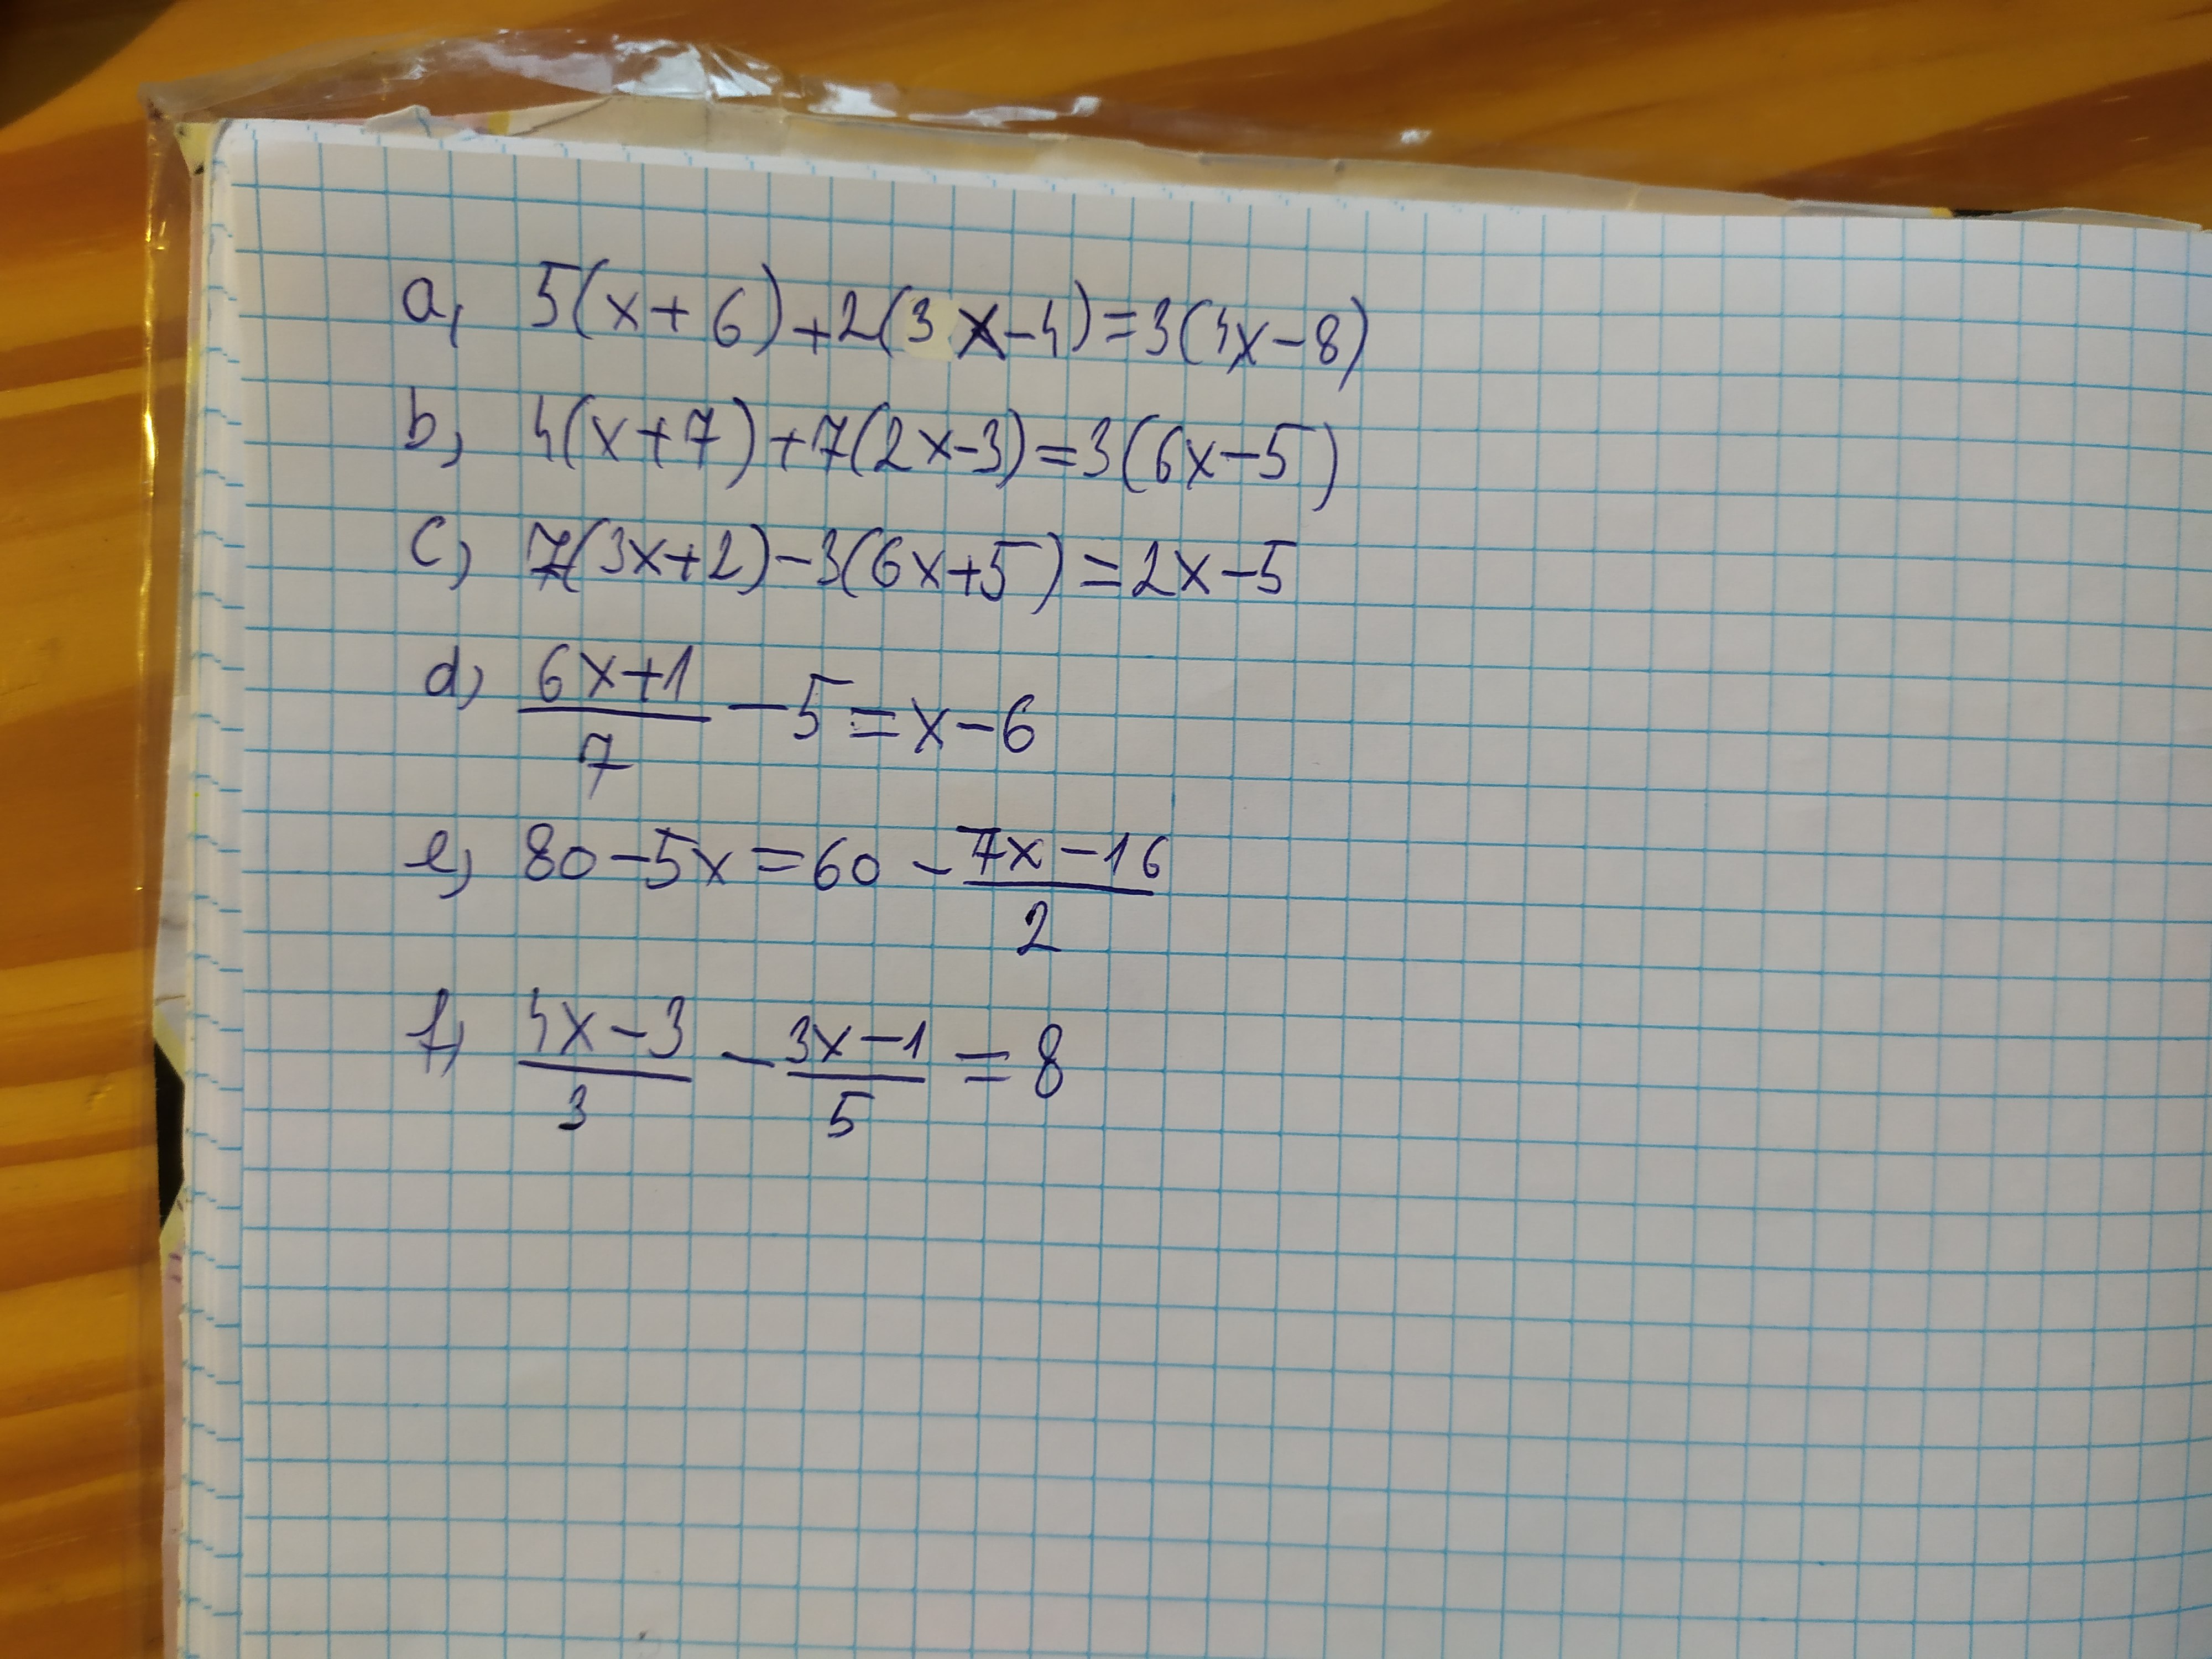 a, 5(x+6)+2(3x-4)=3(4x-8)
b, 4(x+7)+7(2x-3)=3(6x-5)
c, 7(3x+2)-3(6x+5)=2x-5
d, (6x+1)/7 -5=x-6
e, 80-5x=60-(7x-16)/2
f, (4x-3)/3 - (3x-1)/5 = 8